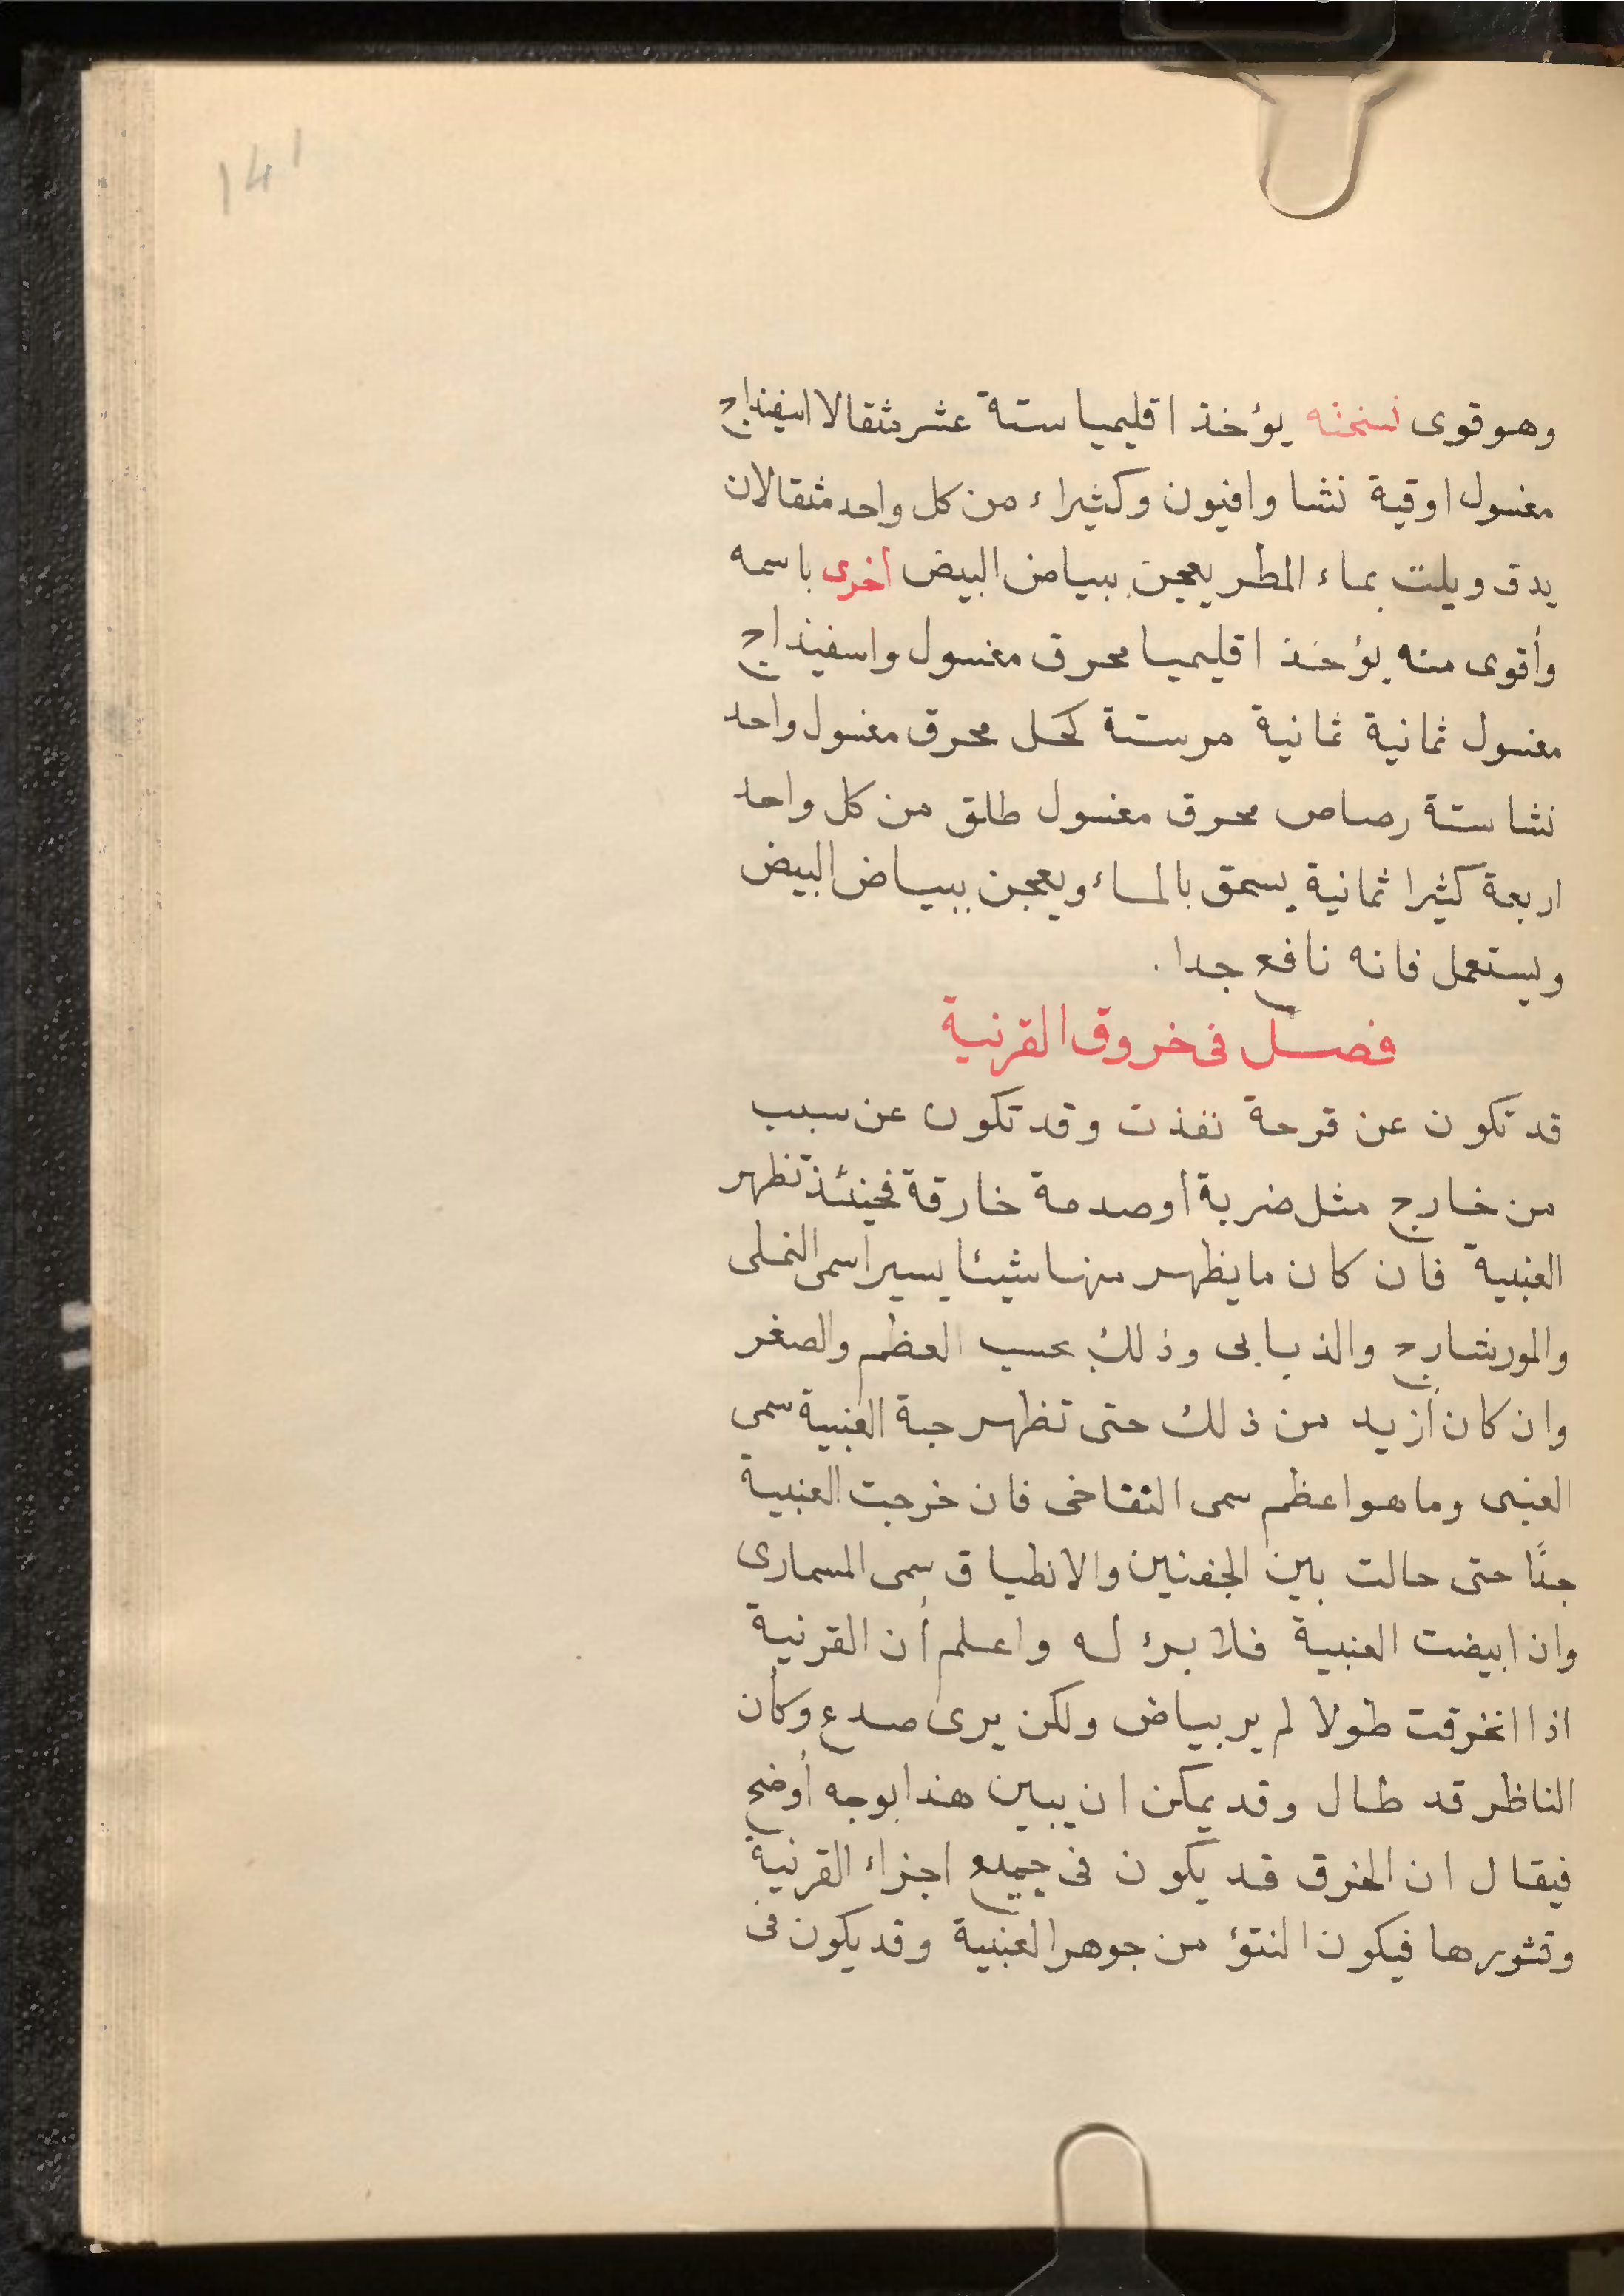 141
وهو قوى نسخته يؤخذ اقليميا ستة عشر مثقالا اسفيذاج
مغسول اوقية نشا وافيون وكثيراء من كل واحد مثقالان
يدق ويلت بماء المطر يعجن ببياض البيض أخرى باسمه
وأقوى منه يؤخذ اقليميا محرق مغسول واسفيذاج
مغسول ثمانية ثمانية مر ستة كحل محرق مغسول واحد
نشا ستة رصاص محرق مغسول طلق من كل واحد
اربعة كثيرا ثمانية يسحق بالماء ويعجن ببياض البيض
ويستعمل فانه نافع جدا .
فصل فى خروق القرنية
قد تكون عن قرحة نفذت وقد تكون عن سبب
من خارج مثل ضربة او صدمة خارقة فحينئذ تظهر
العنبية فان كان ما يظهر منها شيئا يسيرا سمى النملى
والمورشارج والذبابى وذلك بحسب العظم والصغر
وان كان أزيد من ذلك حتى تظهر حبة العنبية سمى
العنبى وما هو اعظم سمى التفاخى فان خرجت العنبية
جدًا حتى حالت بين الجفنين والانطباق سمى المسمارى
وان ابيضت العنبية فلا برء له واعلم أن القرنية
اذا انخرقت طولا لم ير بياض ولكن يرى صدع وكأن
الناظر قد طال وقد يمكن ان يبين هذا بوجه أوضح
فيقال ان الخرق قد يكون فى جميع اجزاء القرنية
وقشورها فيكون النتؤ من جوهر العنبية وقد يكون فى